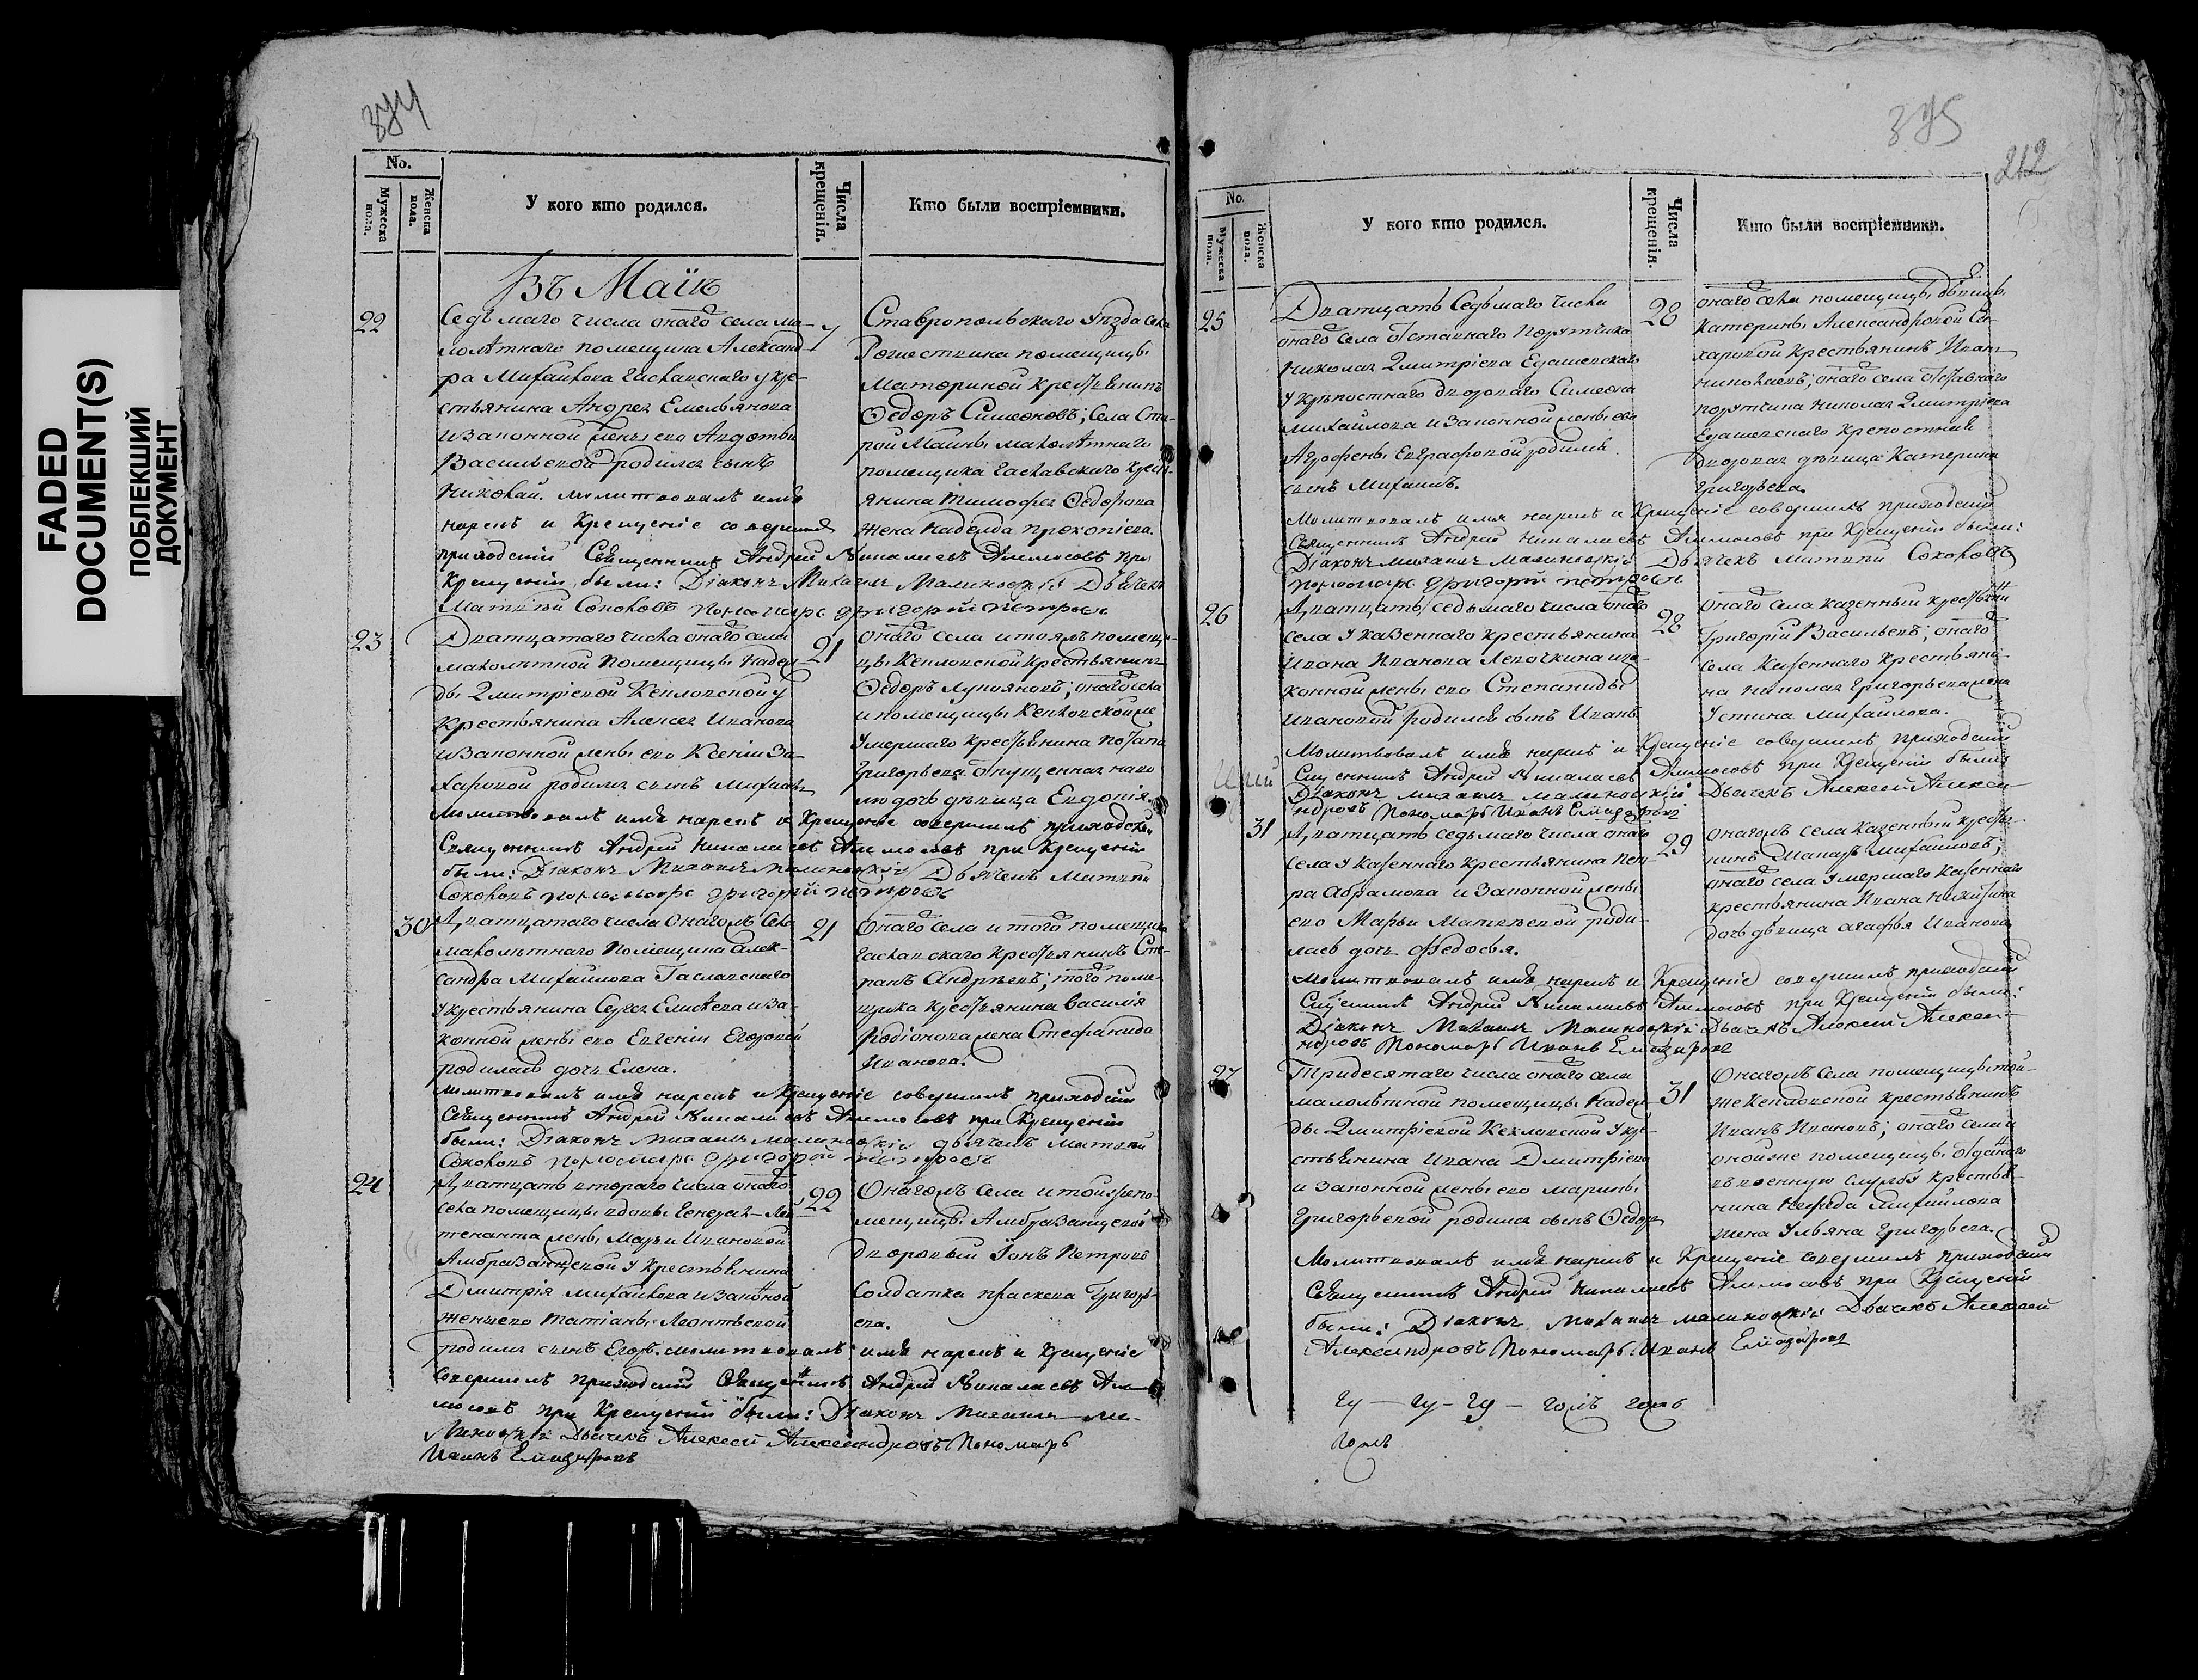 FADED
DOCUMENT(S)
ПОБЛЕКШИЙ
ДОКУМЕНТ
374
No.
Мужеска пола.
Женска пола.
У кого кто родился.
Числа крещенія.
Кто были воспріемники.
Въ Маіѣ
22
Седьмаго числа онаго села ма-
лолѣтнаго помещика Александ-
ра Михайлова Гаславскаго у кре-
стьянина Андрея Емельянова
и законной жены его Авдотьи
Васильевой родился сынъ
Николай. молитвовалъ имя
нарекъ и Крещеніе совершилъ
приходскій Священникъ Андрей Николаевъ Аммосовъ при
Крещеніи были: Діаконъ Михаилъ Малиновскій Дьячекъ
Матвѣй Соколовъ пономарь григорій петровъ
7
Ставропольскаго Уѣзда села
помещицы
крестьянинъ
Ѳедоръ Симеоновъ; Села Ста-
рой Маины малолѣтнаго
помещика Гаславскаго крест-
янина Тимофея Ѳедорова
жена Надежда Прокопіева.
23
Дватцатаго числа онаго села
малолѣтной Помещицы Надеж-
ды Дмитріевой Кехловской у
Крестьянина Алексея Иванова
и Законной жены его Ксеніи За-
харовой родился сынъ Михаилъ
молитвовалъ имя нарекъ и Крещеніе совершилъ приходской
Священникъ Андрей Николаевъ Аммосовъ при Крещеніи
были: Діаконъ Михаилъ Малиновскій Дьячекъ Матвѣй
Соколовъ пономарь григорій петровъ
21
онаго села и тояжъ помещи-
цы Кехловской Крестьянинъ
Ѳедоръ Лукояновъ; онаго села
и помещицы Кехловской
Умершаго крестьянина Потапа
Григорьева
дочь дѣвица Евдокія.
30
Дватцатаго числа Онагожъ Села
малолѣтнаго Помещика Алек-
сандра Михайлова Гаславскаго
у крестьянина Сергея Елисѣева и за-
конной жены его Евгеніи Егоровой
родилась дочь Елена.
молитвовалъ имя нарекъ и Крещеніе совершилъ приходскій
Священникъ Андрей Николаевъ Аммосовъ при Крещеніи
были: Діаконъ Михаилъ Малиновскій дьячекъ Матвѣй
Соколовъ пономарь григорій петровъ
21
Онаго села и того помещика
Гаславскаго Крестьянинъ Сте-
панъ Андрѣевъ; того поме-
щика крестьянина Василія
Родіонова жена Стефанида
Иванова.
24
Дватцать втораго числа онаго
села помещицы вдовы Генерал-Лей-
тенанта жены Марьи Ивановой
Амбразанцевой у Крестьянина
Дмитрія Михайлова и законной
жены его Татіаны Леонтьевой
родился сынъ Егоръ. молитвовалъ имя нарекъ и Крещеніе
совершилъ приходскій Священникъ Андрей Николаевъ Ам-
мосовъ при Крещеніи были: Діаконъ Михаилъ Ма-
линовскій Дьячекъ Алексей Александровъ Пономарь
Иванъ Елиазаровъ
22
Онагожъ села и тойже по-
мещицы Амбразанцевой
дворовый Іонъ Петровъ
Солдатка праскева Григорь-
ева.
375
212
No.
Мужеска пола.
Женска пола.
У кого кто родился.
Числа крещенія.
Кто были воспріемники.
25
Дватцать Седьмаго числа
онаго Села отставнаго Порутчика
Николая Дмитріева Едашевскаго
у крѣпостнаго двороваго Симеона
Михайлова и Законной жены его
Агрофены Евграфовой родился
сынъ Михаилъ.
Молитвовалъ имя нарекъ и Крещеніе совершилъ приходскій
Священникъ Андрей Николаевъ Аммосовъ при Крещеніи были:
Діаконъ Михаилъ Малиновскій Дьячекъ Матвѣй Соколовъ
пономарь григорій петровъ
28
онаго села помещицы дѣвицы
Катерины Александровой Са-
харовой Крестьянинъ Иванъ
Николаевъ; онаго села отставнаго
порутчика Николая Дмитріева
Едашевскаго крепостная
дворовая дѣвица Катерина
Григорьева.
26
Дватцать седьмаго числа онаго
села у казеннаго крестьянина
Ивана Иванова Левочкина и за-
конной жены его Степаниды
Ивановой родился сынъ Иванъ
Молитвовалъ имя нарекъ и Крещеніе совершилъ приходскій
Священникъ Андрей Николаевъ Аммосовъ при Крещеніи были
Діаконъ Михаилъ Малиновскій Дьячекъ Алексей Алекса-
ндровъ Пономарь Иванъ Елиазаровъ
28
Онаго села казенный крестьянинъ
Григорій Васильевъ; онаго
села Казеннаго Крестьяни-
на Николая Григорьева жена
Устина Михайлова.
31
Дватцать седьмаго числа онаго
Села у Казеннаго крестьянина Пет-
ра Абрамова и Законной жены
его Марьи Матвѣевой роди-
лась дочь Ѳедосья.
молитвовалъ имя нарекъ и Крещеніе совершилъ приходскій
Священникъ Андрей Николаевъ Аммосовъ при Крещеніи были:
Діаконъ Михаилъ Малиновскій Дьячекъ Алексей Алекса-
ндровъ Пономарь Иванъ Елиазаровъ
29
онагожъ села Казенный крестья-
нинъ Макаръ Михайловъ;
онаго села Умершаго Казеннаго
крестьянина Ивана Никитина
дочь дѣвица Агафья Иванова
27
Тридесятаго числа онаго села
малолѣтной помещицы Надеж-
ды Дмитріевой Кехловской у кре-
стьянина Ивана Дмитріева
и Законной жены его Марины
Григорьевой родился сынъ Ѳедоръ
Молитвовалъ имя нарекъ и Крещеніе совершилъ приходскій
Священникъ Андрей Николаевъ Аммосовъ при Крещеніи
были: Діаконъ Михаилъ Малиновскій Дьячекъ Алексей
Александровъ Пономарь Иванъ Елиазаровъ
31
Онагожъ Села помещицы той-
же Кехловской крестьянинъ
Иванъ Ивановъ; онаго села и
онойже помещицы отданнаго
въ военную службу крестья-
нина Нефеда Михайлова
жена Ульяна Григорьева.